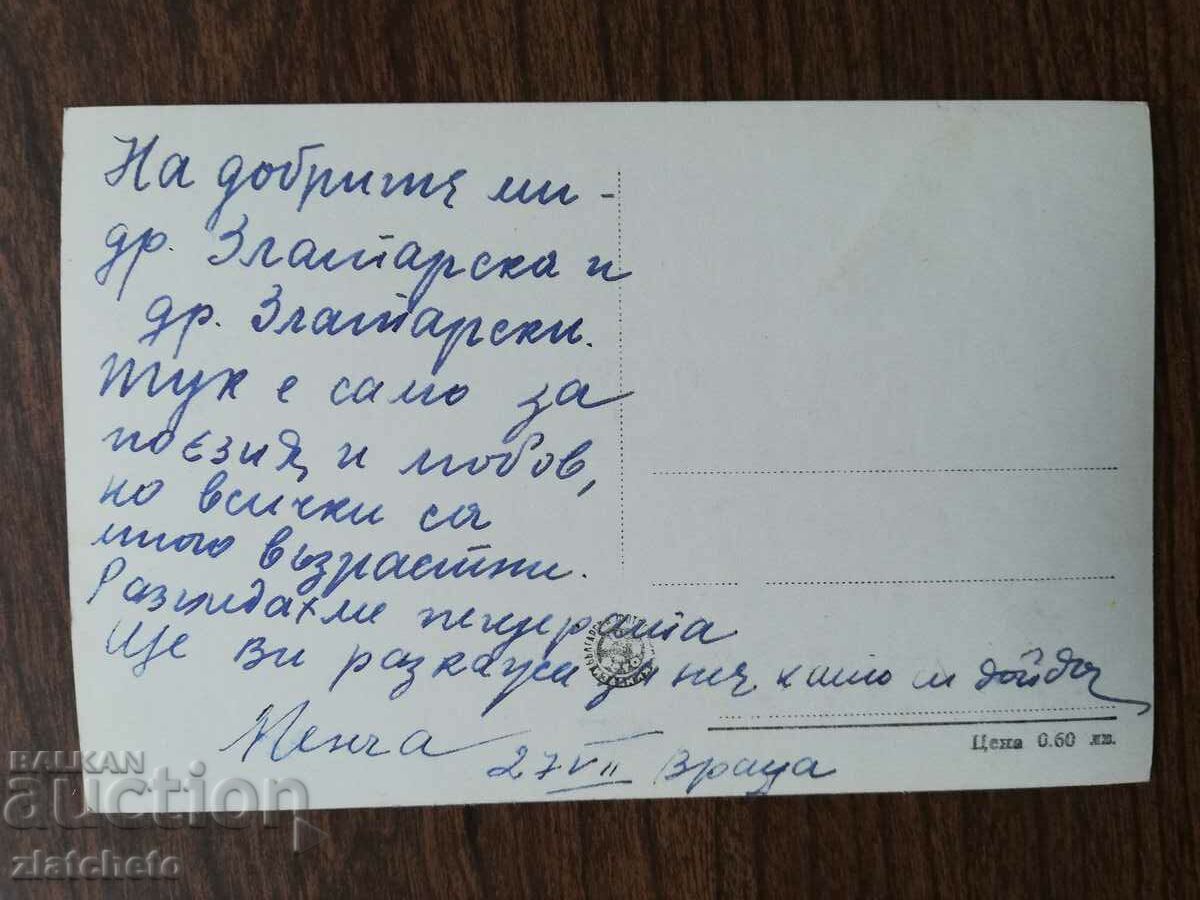 На добрите ми -
др. Златарска и
др. Златарски.
Тук е само за
поезия и любов,
но всички са
много възрастни.
Разгледахме пещерата
Ще Ви разкажа за нея като си дойда
Менча
27 VII Враца
Цена 0.60 лв.
BALKAN
auction
zlatcheto